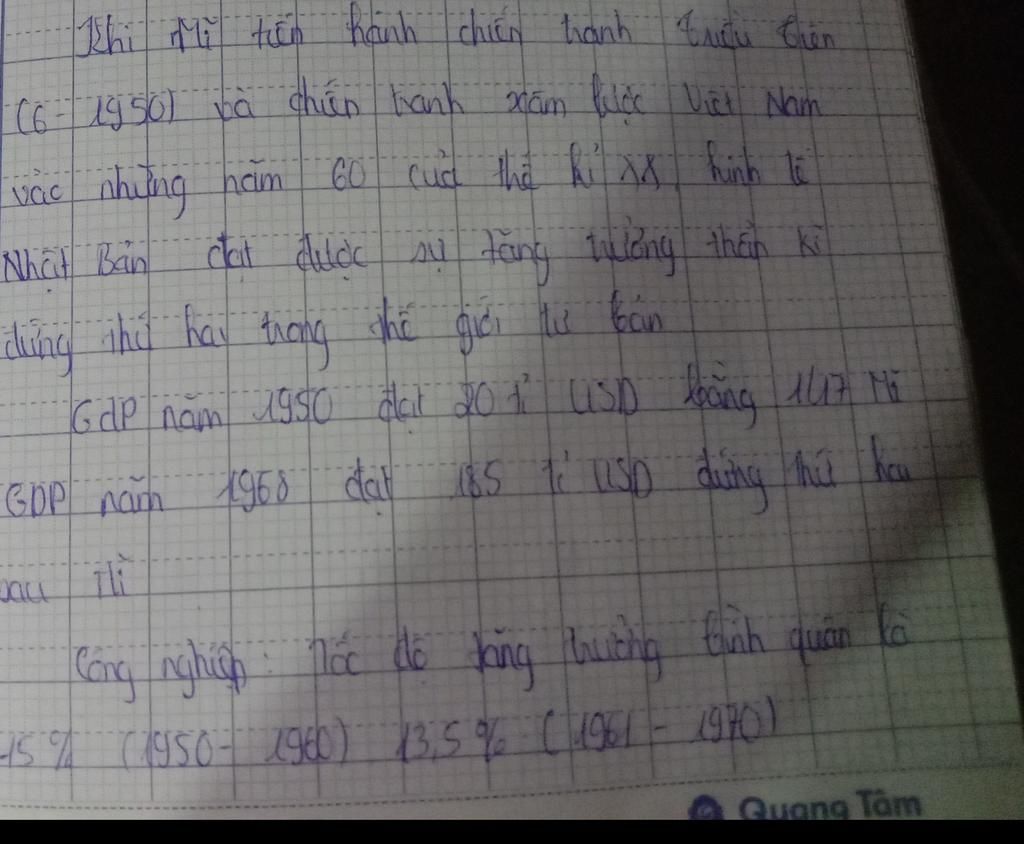 Khi Mĩ tiến hành chiến tranh Triều Tiên
(6-1950) và chiến tranh xâm lược Việt Nam
vào những năm 60 của thế kỉ XX, kinh tế
Nhật Bản đạt được sự tăng trưởng thần kì
đứng thứ hai trong thế giới tư bản
GdP năm 1950 đạt 20 tỉ USD bằng 1/17 Mĩ
GDP năm 1968 đạt 185 tỉ USD đứng thứ hai
sau Mĩ
Công nghiệp: Tốc độ tăng trưởng bình quân là
15% (1950 - 1960) 13,5% (1961 - 1970)
Quang Tâm